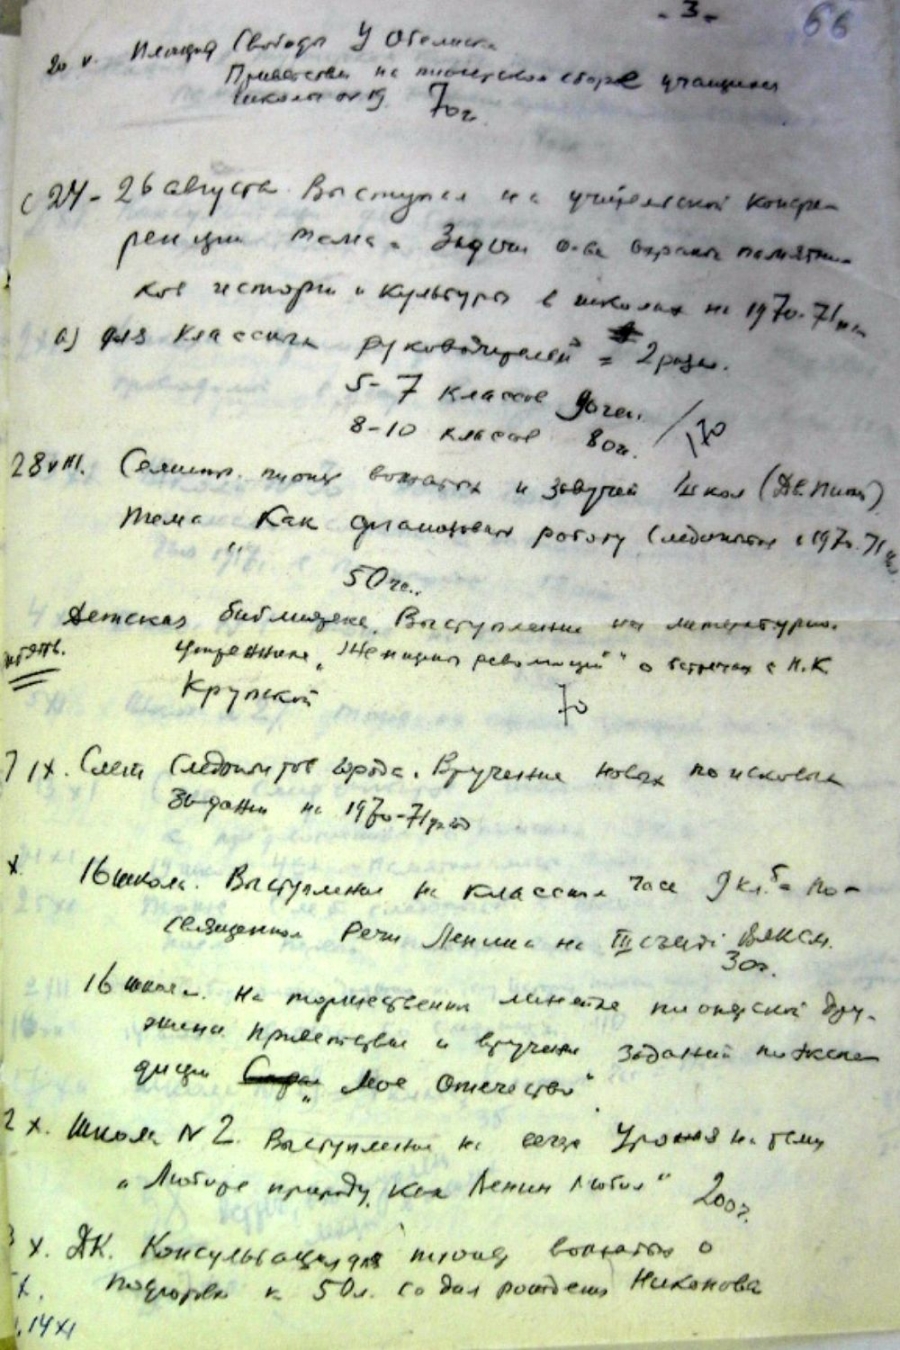 - 3 -
66
20 V. Площадь Свободы У Обелиска
Приветствие на пионерском сборе учащихся
школы № 19 70 ч.
с 24 - 26 августа. Выступил на учительской конфе-
ренции тема " Задачи о-ва охраны памятни-
ков истории и культуры в школах на 1970-71
а) для классных руководителей = 2 раза.
5-7 классов 90 чел.
8-10 классов 80 ч. / 170
28 VIII. Семинар пионер вожатых и завучей школ (Дв. Пион)
Тема "Как организовать работу следопытов в 1970-71
50 че..
Детская библиотека. Выступление на литературно.
утреннике "Женщины революции" о встречах с Н.К
Крупской 70
7 IX. Слет следопытов города. Вручение новых поисковых
заданий на 1970-71 год
X. 16 школа. Выступление на классном часе 9 кл. по-
священном Речи Ленина на III съезде ВЛКСМ.
30 ч.
16 школа. На торжественной линейке пионерской дру-
жины приветствие и вручение заданий по экспе-
диции "Мое Отечество"
2 X. Школа N 2. Выступление на вечере Урожая на тему
"Любите природу, как Ленин любил" 200 ч.
X. ДК. Консультация для пионер вожатых о
X. подготовке к 50 л. со дня рождения Никонова
14 XI